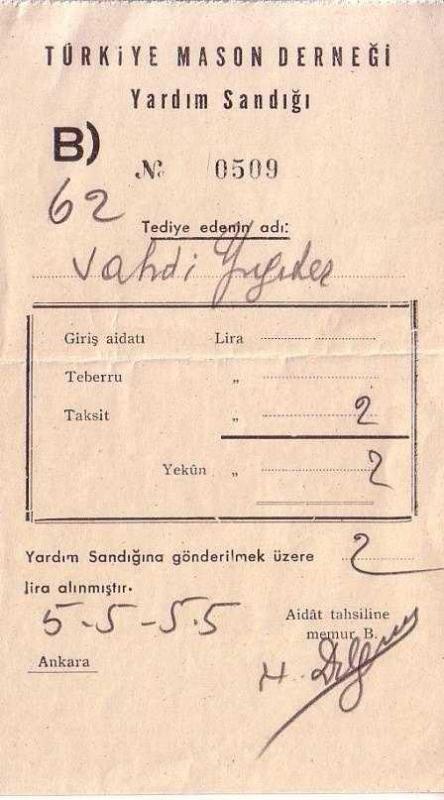 TÜRKİYE MASON DERNEĞİ
Yardım Sandığı
B)
№ 0509
62
Tediye edenin adı:
Vahdi
Giriş aidatı Lira
Teberru „
Taksit „ 2
Yekûn „ 2
Yardım Sandığına gönderilmek üzere 2
lira alınmıştır.
5-5-55
Aidât tahsiline
memur B.
Ankara
H.